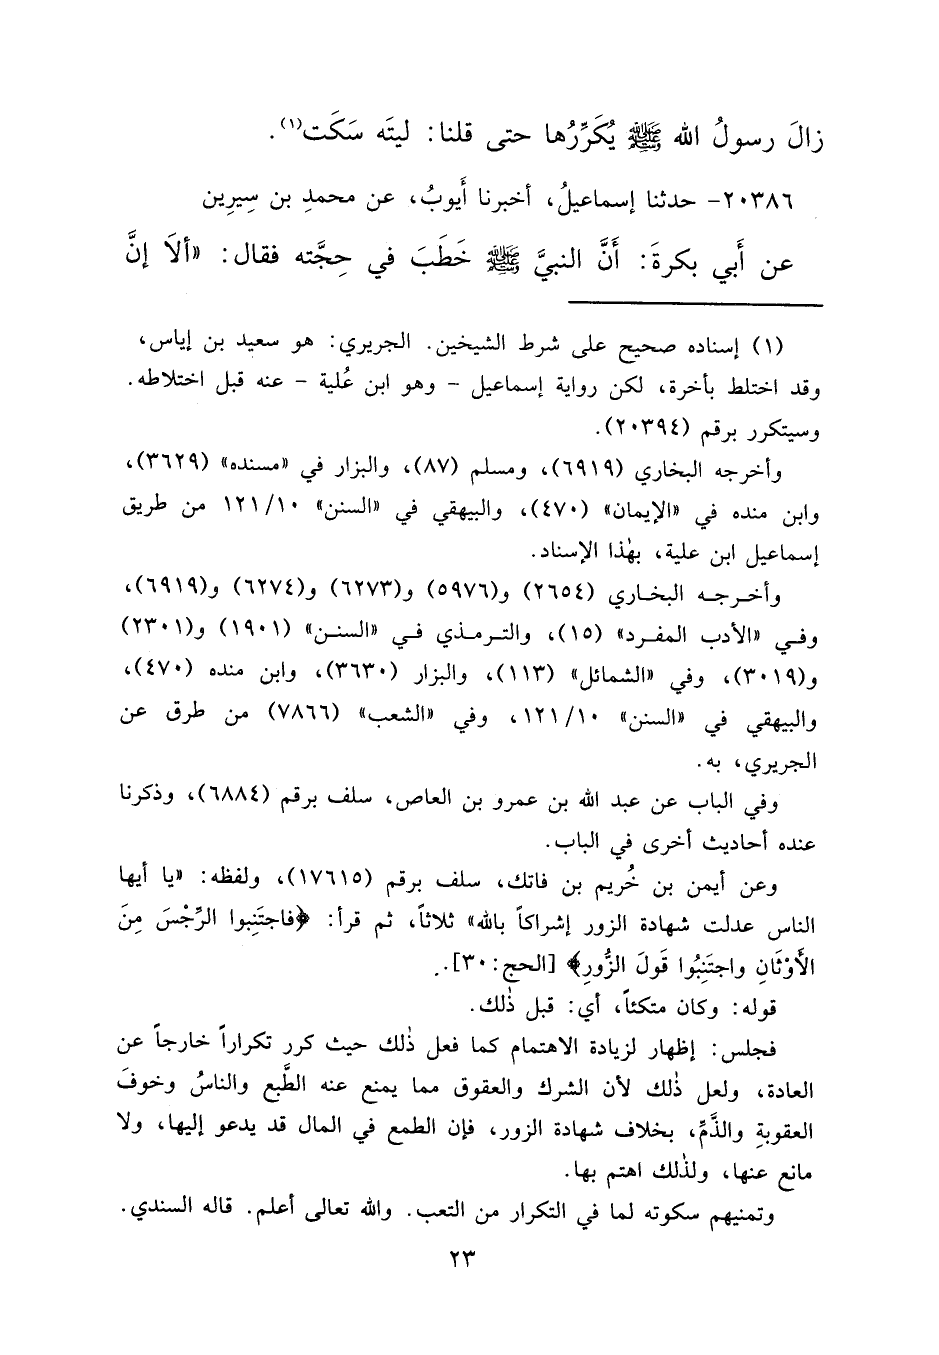 زالَ رسولُ الله ﷺ يُكَرِّرُها حتى قلنا: ليتَه سَكَت(١).
٢٠٣٨٦- حدثنا إسماعيلُ، أخبرنا أَيوبُ، عن محمدِ بن سِيرِين
عن أَبي بكرةَ: أَنَّ النبيَّ ﷺ خَطَبَ في حِجَّته فقال: «ألَا إنَّ
(١) إسناده صحيح على شرط الشيخين. الجريري: هو سعيد بن إياس،
وقد اختلط بأخرة، لكن رواية إسماعيل - وهو ابن عُلية - عنه قبل اختلاطه.
وسيتكرر برقم (٢٠٣٩٤).
وأخرجه البخاري (٦٩١٩)، ومسلم (٨٧)، والبزار في «مسنده» (٣٦٢٩)،
وابن منده في «الإيمان» (٤٧٠)، والبيهقي في «السنن» ١٢١/١٠ من طريق
إسماعيل ابن علية، بهٰذا الإسناد.
وأخرجه البخاري (٢٦٥٤) و(٥٩٧٦) و(٦٢٧٣) و(٦٢٧٤) و(٦٩١٩)،
وفي «الأدب المفرد» (١٥)، والترمذي في «السنن» (١٩٠١) و(٢٣٠١)
و(٣٠١٩)، وفي «الشمائل» (١١٣)، والبزار (٣٦٣٠)، وابن منده (٤٧٠)،
والبيهقي في «السنن» ١٢١/١٠، وفي «الشعب» (٧٨٦٦) من طرق عن
الجريري، به.
وفي الباب عن عبد الله بن عمرو بن العاص، سلف برقم (٦٨٨٤)، وذكرنا
عنده أحاديث أخرى في الباب.
وعن أيمن بن خُريم بن فاتك، سلف برقم (١٧٦١٥)، ولفظه: «يا أيها
الناس عدلت شهادة الزور إشراكاً بالله» ثلاثاً، ثم قرأ: ﴿فاجتَنِبوا الرِّجْسَ مِنَ
الأَوْثَانِ واجتَنِبُوا قَولَ الزُّورِ﴾ [الحج:٣٠].
قوله: وكان متكئاً، أي: قبل ذٰلك.
فجلس: إظهار لزيادة الاهتمام كما فعل ذٰلك حيث كرر تكراراً خارجاً عن
العادة، ولعل ذٰلك لأن الشرك والعقوق مما يمنع عنه الطَّبع والناسُ وخوفَ
العقوبةِ والذَّمِّ، بخلاف شهادة الزور، فإن الطمع في المال قد يدعو إليها، ولا
مانع عنها، ولذٰلك اهتم بها.
وتمنيهم سكوته لما في التكرار من التعب. والله تعالى أعلم. قاله السندي.
٢٣